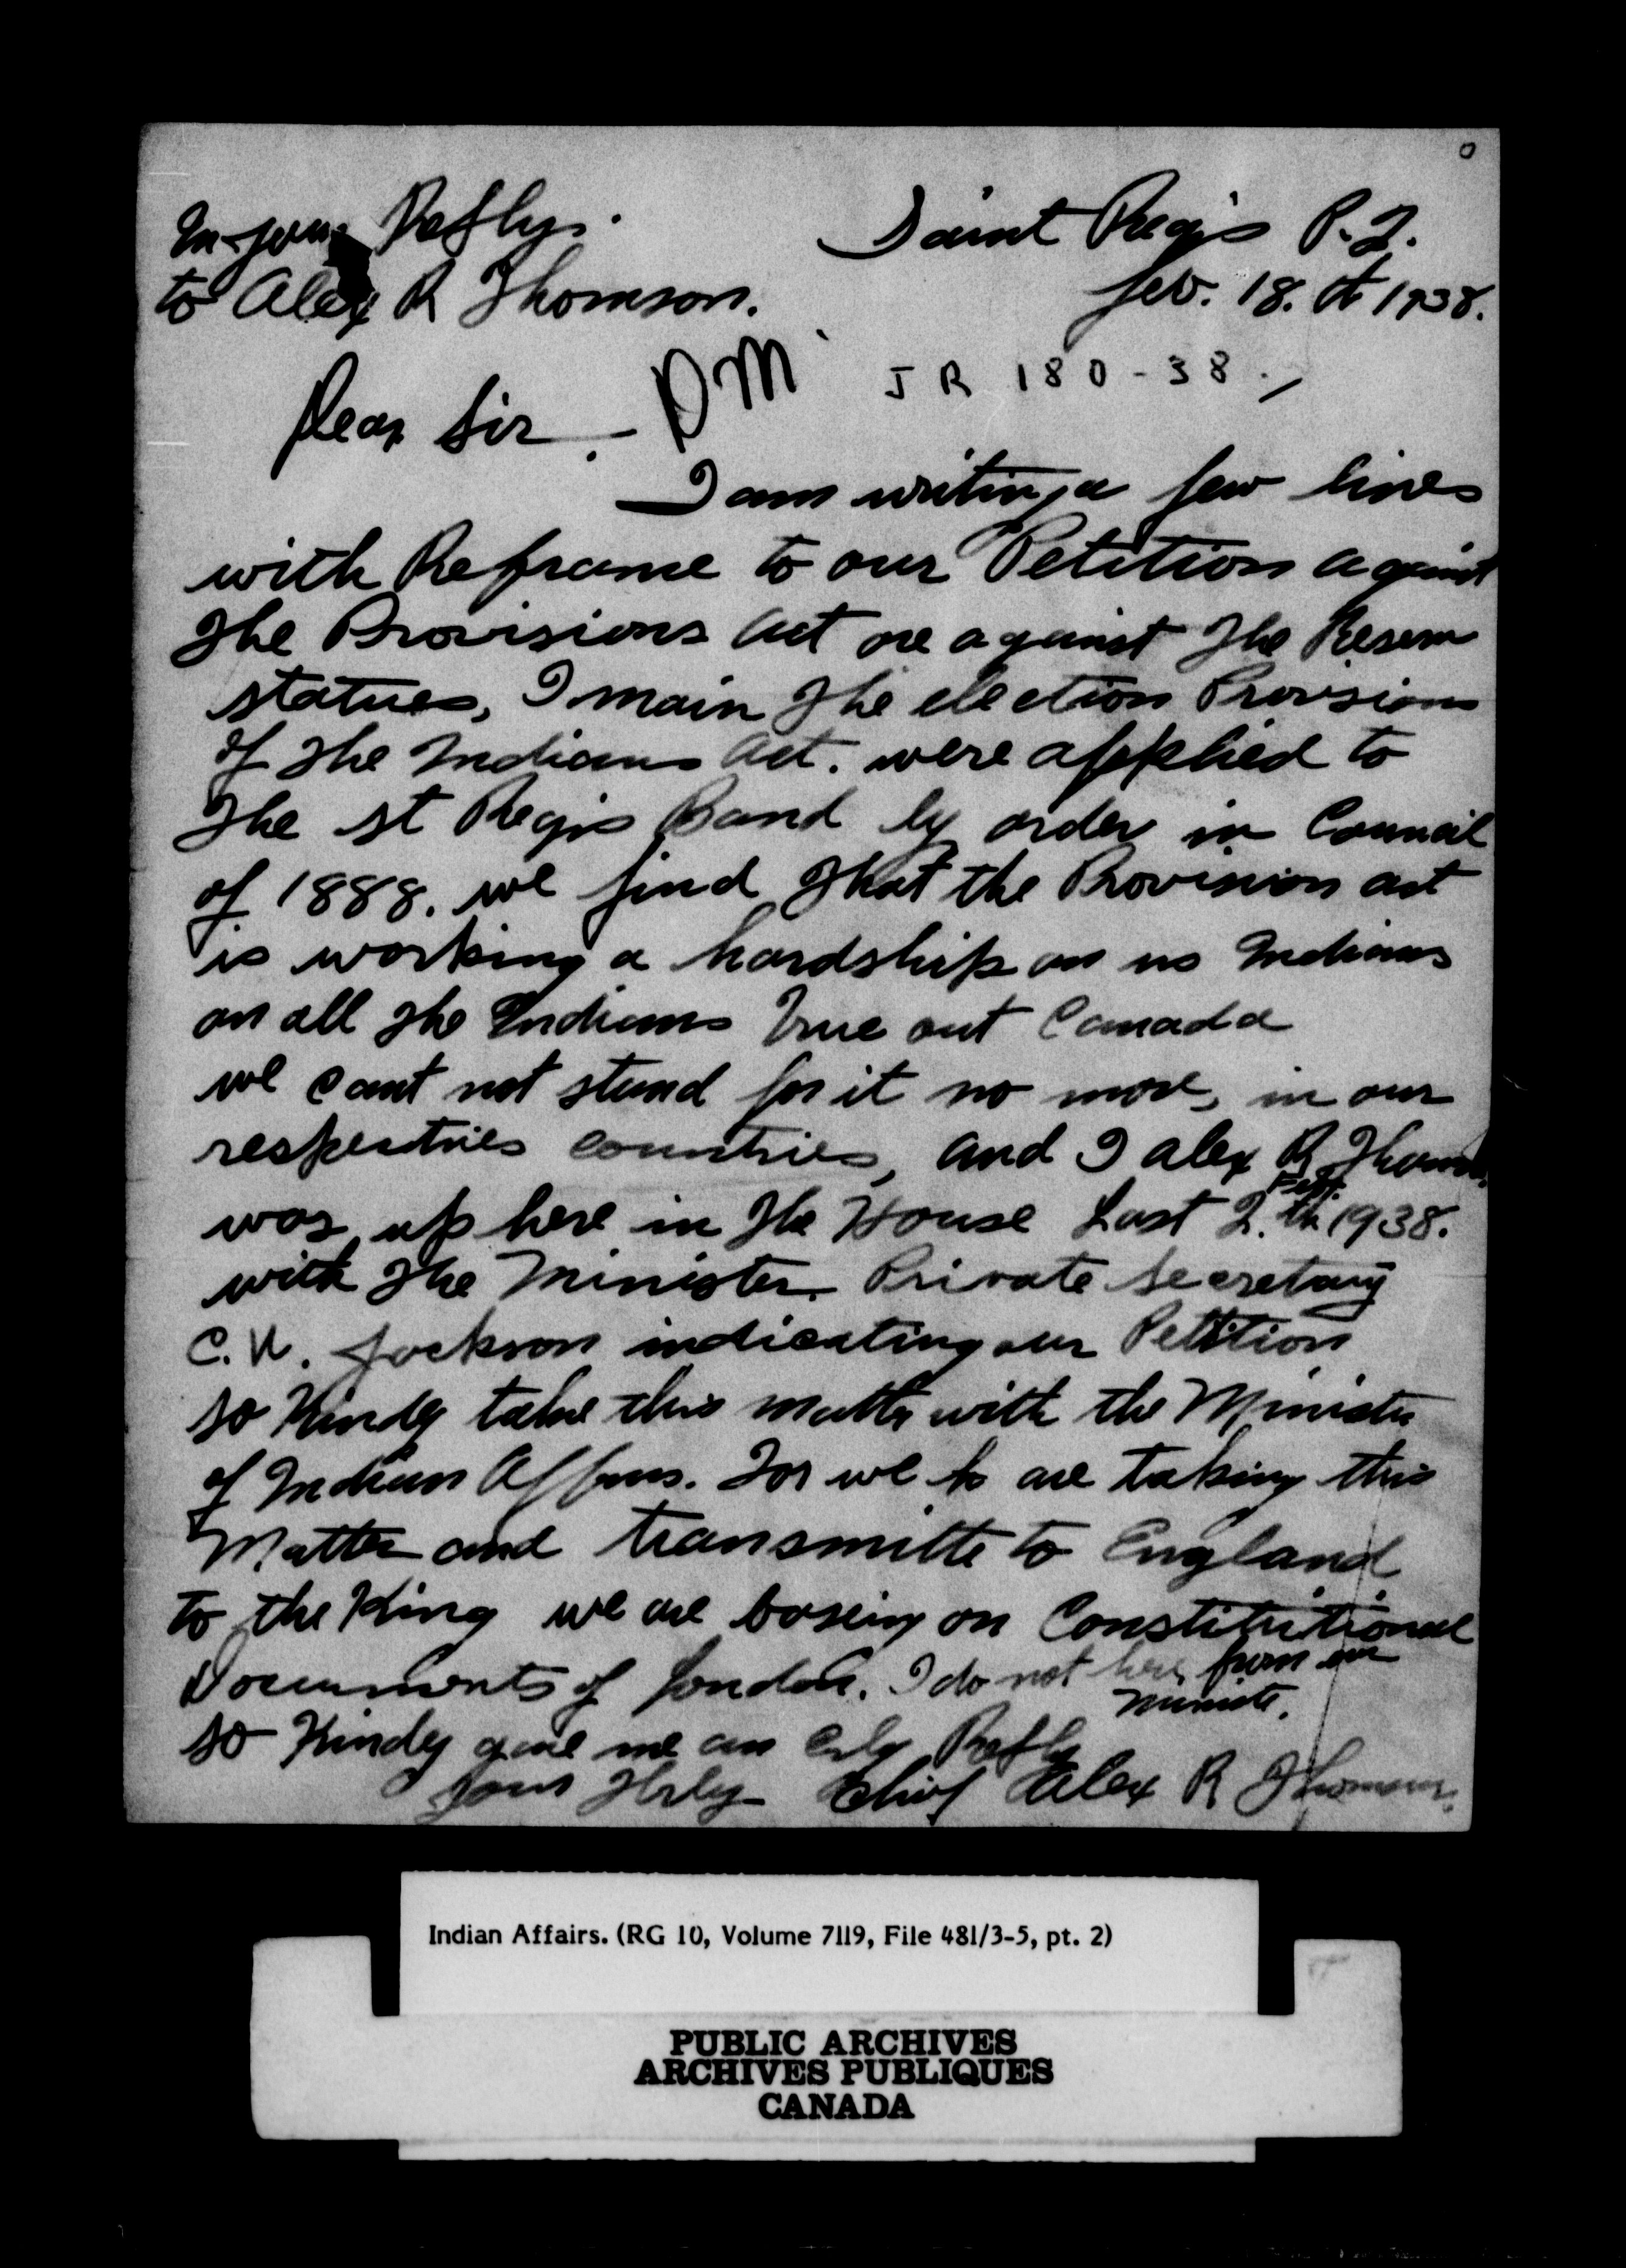 In your Reply.
to Alex R Thomson.
Saint Regis P.Q.
feb. 18. th 1938.
DM
JR 180-38.
Dear Sir.-
I am writing a few lines
with Reframe to our Petition against
The Provisions act are against The Reserve
statues, I main The election Provisions
of The Indians Act. were applied to
The st Regis Band by order in Council
of 1888. we find That the Provision act
is working a hardship on us Indians
on all The Indians True out Canada
we cant not stand for it no more, in our
respectries countries, and I alex R Thomson
was up here in The House Last Feb. 2.th 1938.
with The Minister. Private Secretary
C.W. Jackson indicating our Petition
so Kindly take this matter with the Minister
of Indian Affairs. For we to are taking this
Matter and transmitte to England
to the King we are baseing on Constitutional
Documents of London. I do not here from our
Ministe.
so Kindly give me an erly Reply
Yours Trly Chief Alex R Thomson.
Indian Affairs. (RG 10, Volume 7119, File 481/3-5, pt. 2)
PUBLIC ARCHIVES
ARCHIVES PUBLIQUES
CANADA